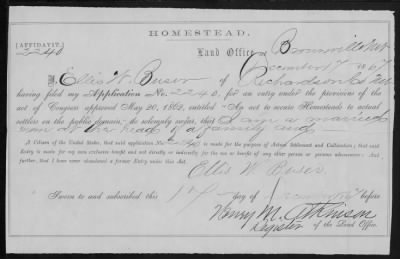 HOMESTEAD.
[AFFIDAVIT.]
2240
Land Office Brownville Neb
December 17 1867
I, Ellis W. Buser of Richardson Co Neb
having filed my Application No. 2240, for an entry under the provisions of the
act of Congress approved May 20, 1862, entitled "An act to secure Homesteads to actual
settlers on the public domain," do solemnly swear, that I am a married
man at the head of a family and
A Citizen of the United States, that said application No. 2240 is made for the purpose of Actual Settlement and Cultivation; that said
Entry is made for my own exclusive benefit and not directly or indirectly, for the use or benefit of any other person or persons whomsoever: And
further, that I have never abandoned a former Entry under this Act.
Ellis W Buser
Sworn to and subscribed this 17 day of December 67 before
Henry M. Atkinson
Register of the Land Office.